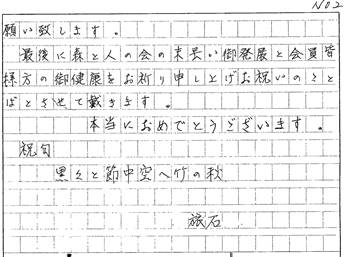 NO2
願い致します。
最後に森と人の会の末長い御発展と会員皆
様方の御健康をお祈り申し上げお祝いのこと
ばとさせて戴きます。
本当におめでとうございます。
祝句
黒々と節中空へ竹の秋
旅石